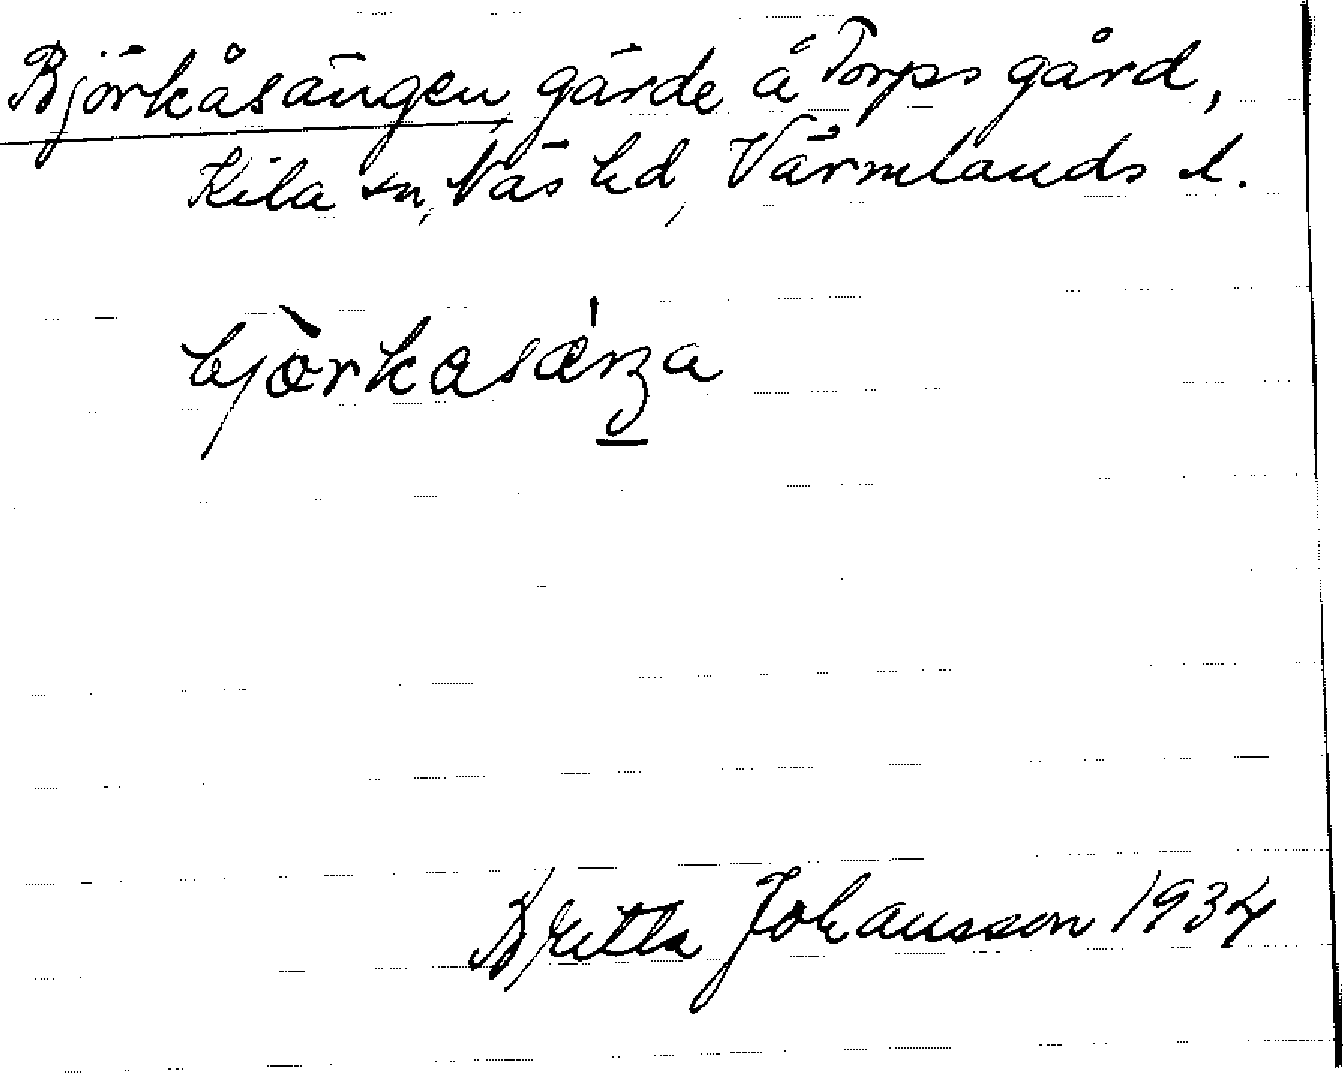 Björkåsängen gärde å Torps gård,
Kila sn, Näs hd, Värmlands l.
bjòrkasǽŋa
Britta Johansson 1934